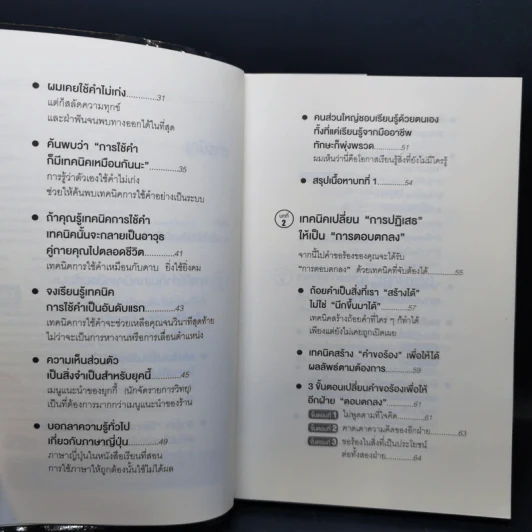 • ผมเคยใช้คำไม่เก่ง............31
แต่ก็สลัดความทุกข์
และฝ่าฟันจนพบทางออกได้ในที่สุด
• ค้นพบว่า “การใช้คำ
ก็มีเทคนิคเหมือนกันนะ”............35
การรู้ว่าตัวเองใช้คำไม่เก่ง
ช่วยให้ค้นพบเทคนิคการใช้คำอย่างเป็นระบบ
• ถ้าคุณรู้เทคนิคการใช้คำ
เทคนิคนั้นจะกลายเป็นอาวุธ
คู่กายคุณไปตลอดชีวิต............41
เทคนิคการใช้คำเหมือนกับดาบ ยิ่งใช้ยิ่งคม
• จงเรียนรู้เทคนิค
การใช้คำเป็นอันดับแรก............43
เทคนิคการใช้คำจะช่วยเหลือคุณจนวินาทีสุดท้าย
ไม่ว่าจะเป็นการหางานหรือการเลื่อนตำแหน่ง
• ความเห็นส่วนตัว
เป็นสิ่งจำเป็นสำหรับยุคนี้............45
เมนูแนะนำของยุกกี้ (นักจัดรายการวิทยุ)
เป็นที่ต้องการมากกว่าเมนูแนะนำของร้าน
• บอกลาความรู้ทั่วไป
เกี่ยวกับภาษาญี่ปุ่น............49
ภาษาญี่ปุ่นในหนังสือเรียนที่สอน
การใช้ภาษาให้ถูกต้องนั้นใช้ไม่ได้ผล
• คนส่วนใหญ่ชอบเรียนรู้ด้วยตนเอง
ทั้งที่แค่เรียนรู้จากมืออาชีพ
ทักษะก็พุ่งพรวด............51
ผมเห็นว่านี่คือโอกาสเรียนรู้สิ่งที่ยังไม่มีใครรู้
• สรุปเนื้อหาบทที่ 1............54
บทที่ 2 เทคนิคเปลี่ยน “การปฏิเสธ”
ให้เป็น “การตอบตกลง”
จากนี้ไปคำขอร้องของคุณจะได้รับ
“การตอบตกลง” ด้วยเทคนิคที่จับต้องได้............55
• ถ้อยคำเป็นสิ่งที่เรา “สร้างได้”
ไม่ใช่ “นึกขึ้นมาได้”............57
เทคนิคสร้างถ้อยคำที่ใคร ๆ ก็ทำได้
เพียงแต่ยังไม่เคยถูกเปิดเผย
• เทคนิคสร้าง “คำขอร้อง” เพื่อให้ได้
ผลลัพธ์ตามต้องการ............59
• 3 ขั้นตอนเปลี่ยนคำขอร้องเพื่อให้
อีกฝ่าย “ตอบตกลง”............61
ขั้นตอนที่ 1 ไม่พูดตามที่ใจคิด............61
ขั้นตอนที่ 2 คาดเดาความคิดของอีกฝ่าย............63
ขั้นตอนที่ 3 ขอร้องในสิ่งที่เป็นประโยชน์
ต่อทั้งสองฝ่าย............64